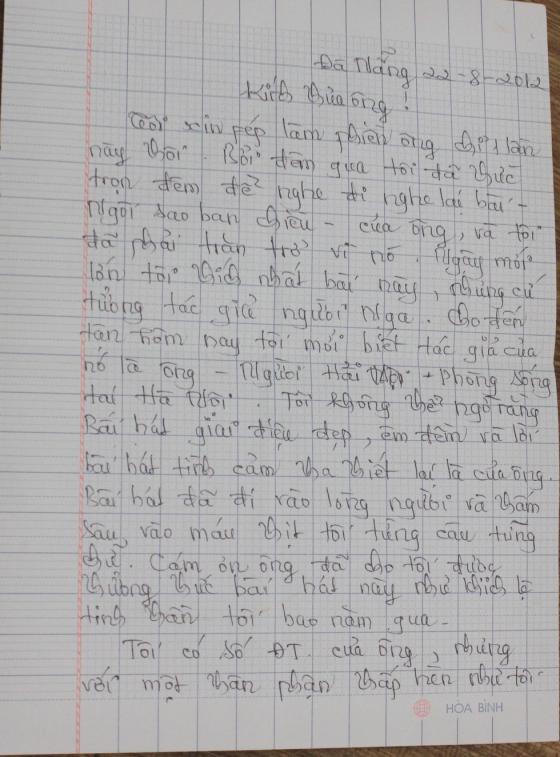 Đà Nẵng 22-8-2012
Kính thưa ông!
Tôi xin phép làm phiền ông chỉ 1 lần
này thôi. Bởi đêm qua tôi đã thức
trọn đêm để nghe đi nghe lại bài -
Ngôi sao ban chiều - của ông, và tôi
đã phải trằn trở vì nó. Ngày mới
lớn tôi thích nhất bài này, nhưng cứ
tưởng tác giả người Nga. Cho đến
tận hôm nay tôi mới biết tác giả của
nó là ông - Người Hải - Phòng sống
tại Hà Nội. Tôi không thể ngờ rằng
Bài hát giai điệu đẹp, êm đềm và lời
bài hát tình cảm tha thiết lại là của ông.
Bài hát đã đi vào lòng người và thấm
sâu, vào máu thịt tôi từng câu từng
chữ. Cám ơn ông đã cho tôi được
thưởng thức bài hát này như khích lệ
tinh thần tôi bao năm qua -
Tôi có số ĐT. của ông, nhưng
với một thân phận thấp hèn như tôi
HÒA BÌNH